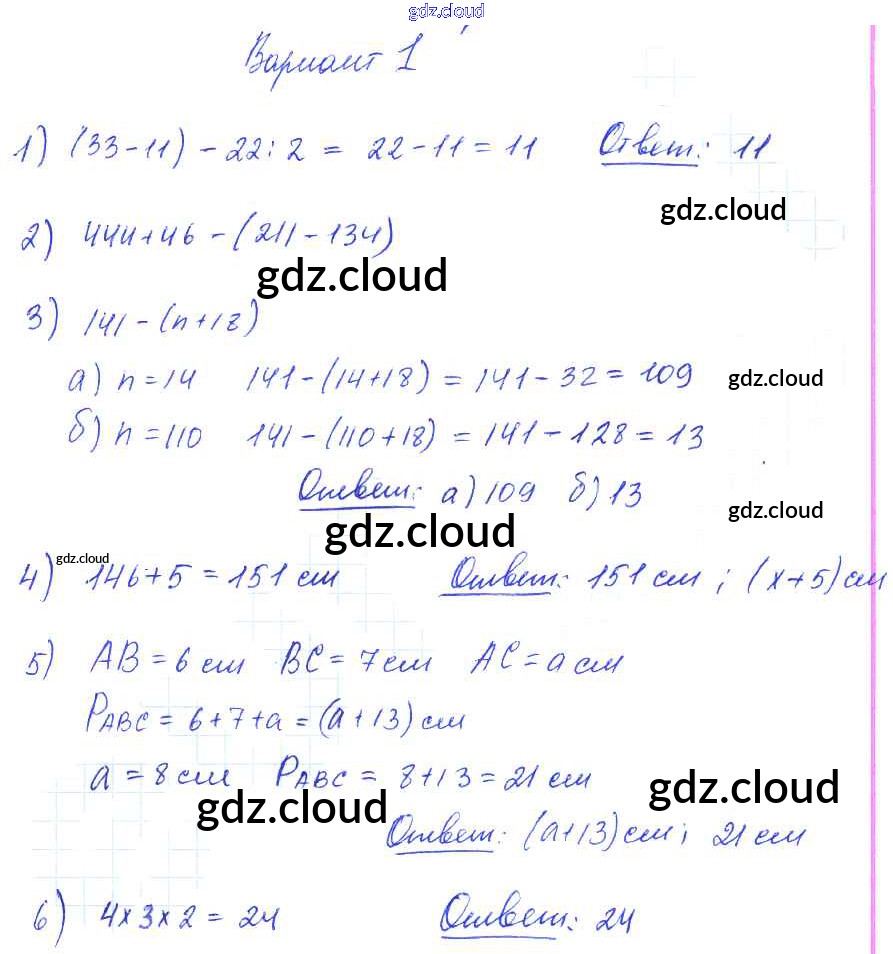 gdz.cloud
Вариант 1
1) (33-11) - 22:2 = 22-11 = 11 Ответ: 11
gdz.cloud
2) 444+46 - (211 - 134)
gdz.cloud
3) 141 - (n+18)
а) n = 14 141-(14+18) = 141-32 = 109
gdz.cloud
б) n = 110 141-(110+18) = 141-128 = 13
Ответ: а) 109 б) 13
gdz.cloud
gdz.cloud
gdz.cloud
4) 146+5 = 151 см Ответ: 151 см ; (x+5) см
5) AB = 6 см BC = 7 см AC = a см
PABC = 6+7+a = (a+13) см
a = 8 см PABC = 8+13 = 21 см
gdz.cloud
gdz.cloud
Ответ: (a+13) см; 21 см
6) 4×3×2 = 24 Ответ: 24